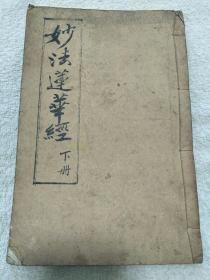 妙法蓮華經
下册